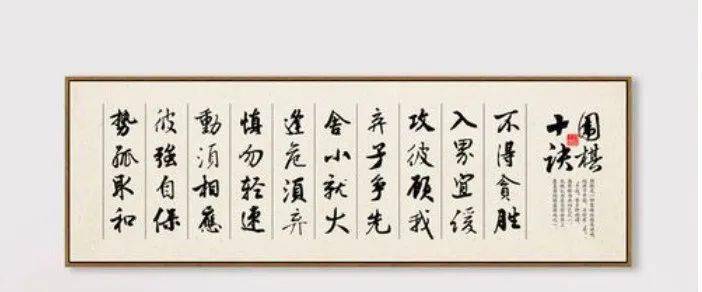 围棋
十诀
不得貪胜
入界宜缓
攻彼顾我
弃子争先
舍小就大
逢危須弃
慎勿轻速
動須相應
彼強自保
势孤取和